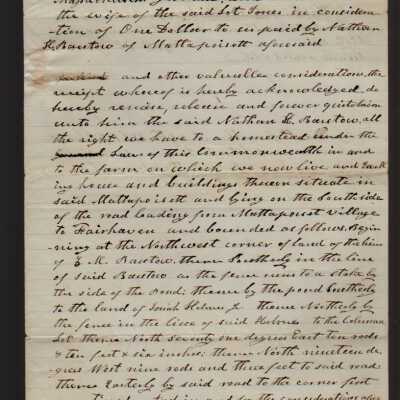 the wife of the said Lot Jones in considera-
tion of One Dollar to us paid by Nathan
H. Barstow of Mattapoisett aforesaid
and other valuable considerations, the
receipt whereof is hereby acknowledged, do
hereby remise, release and forever quitclaim
unto him the said Nathan H. Barstow, all
the right we have to a homestead under the
Law of this Commonwealth in and
to the farm on which we now live and
ing house and buildings thereon situate in
said Mattapoisett and lying on the South side
of the road leading from Mattapoisett Village
to Fairhaven and bounded as follows. Begin-
ning at the Northwest corner of land of the heirs
of E. M. Barstow, thence Southerly in the line
of said Barstow as the fence runs to a stake by
the side of the Pond; thence by the pond
to the land of thence Northerly by
the fence in the line of said to the
Lot thence North Seventy one degrees East ten rods
& ten feet & six inches; thence North nineteen de-
grees West nine rods and three feet to said road
thence Easterly by said road to the corner first